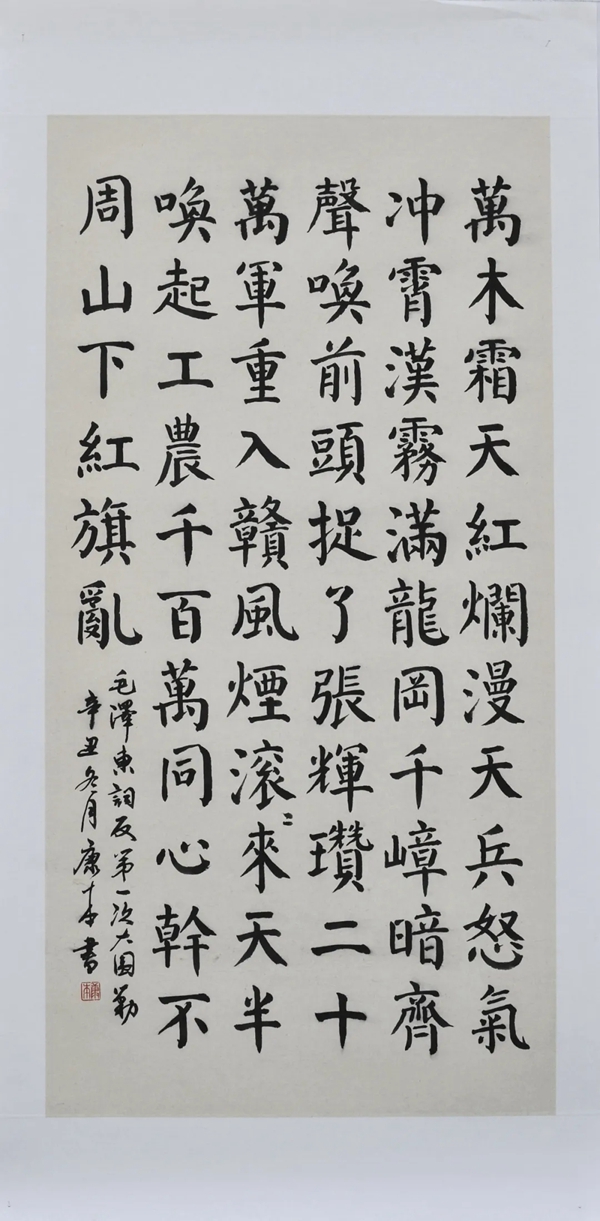 萬木霜天紅爛漫天兵怒氣
冲霄漢霧滿龍岡千嶂暗齊
聲喚前頭捉了張輝瓚二十
萬軍重入贛風煙滾〻來天半
喚起工農千百萬同心幹不
周山下紅旗亂
毛澤東詞反第一次大圍勦
辛丑冬月康書